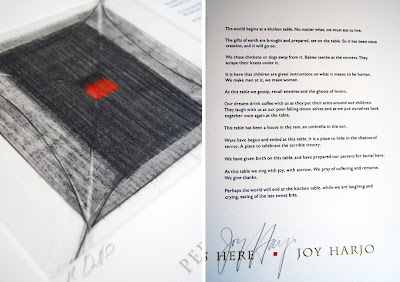 The world begins at a kitchen table. No matter what, we must eat to live.
The gifts of earth are brought and prepared, set on the table. So it has been since
creation, and it will go on.
We chase chickens or dogs away from it. Babies teethe at the corners. They
scrape their knees under it.
It is here that children are given instructions on what it means to be human.
We make men at it, we make women.
At this table we gossip, recall enemies and the ghosts of lovers.
Our dreams drink coffee with us as they put their arms around our children.
They laugh with us at our poor falling-down selves and as we put ourselves back
together once again at the table.
This table has been a house in the rain, an umbrella in the sun.
Wars have begun and ended at this table. It is a place to hide in the shadow of
terror. A place to celebrate the terrible victory.
We have given birth on this table, and have prepared our parents for burial here.
At this table we sing with joy, with sorrow. We pray of suffering and remorse.
We give thanks.
Perhaps the world will end at the kitchen table, while we are laughing and
crying, eating of the last sweet bite.
Joy Harjo
PER
S HERE ▪ JOY HARJO